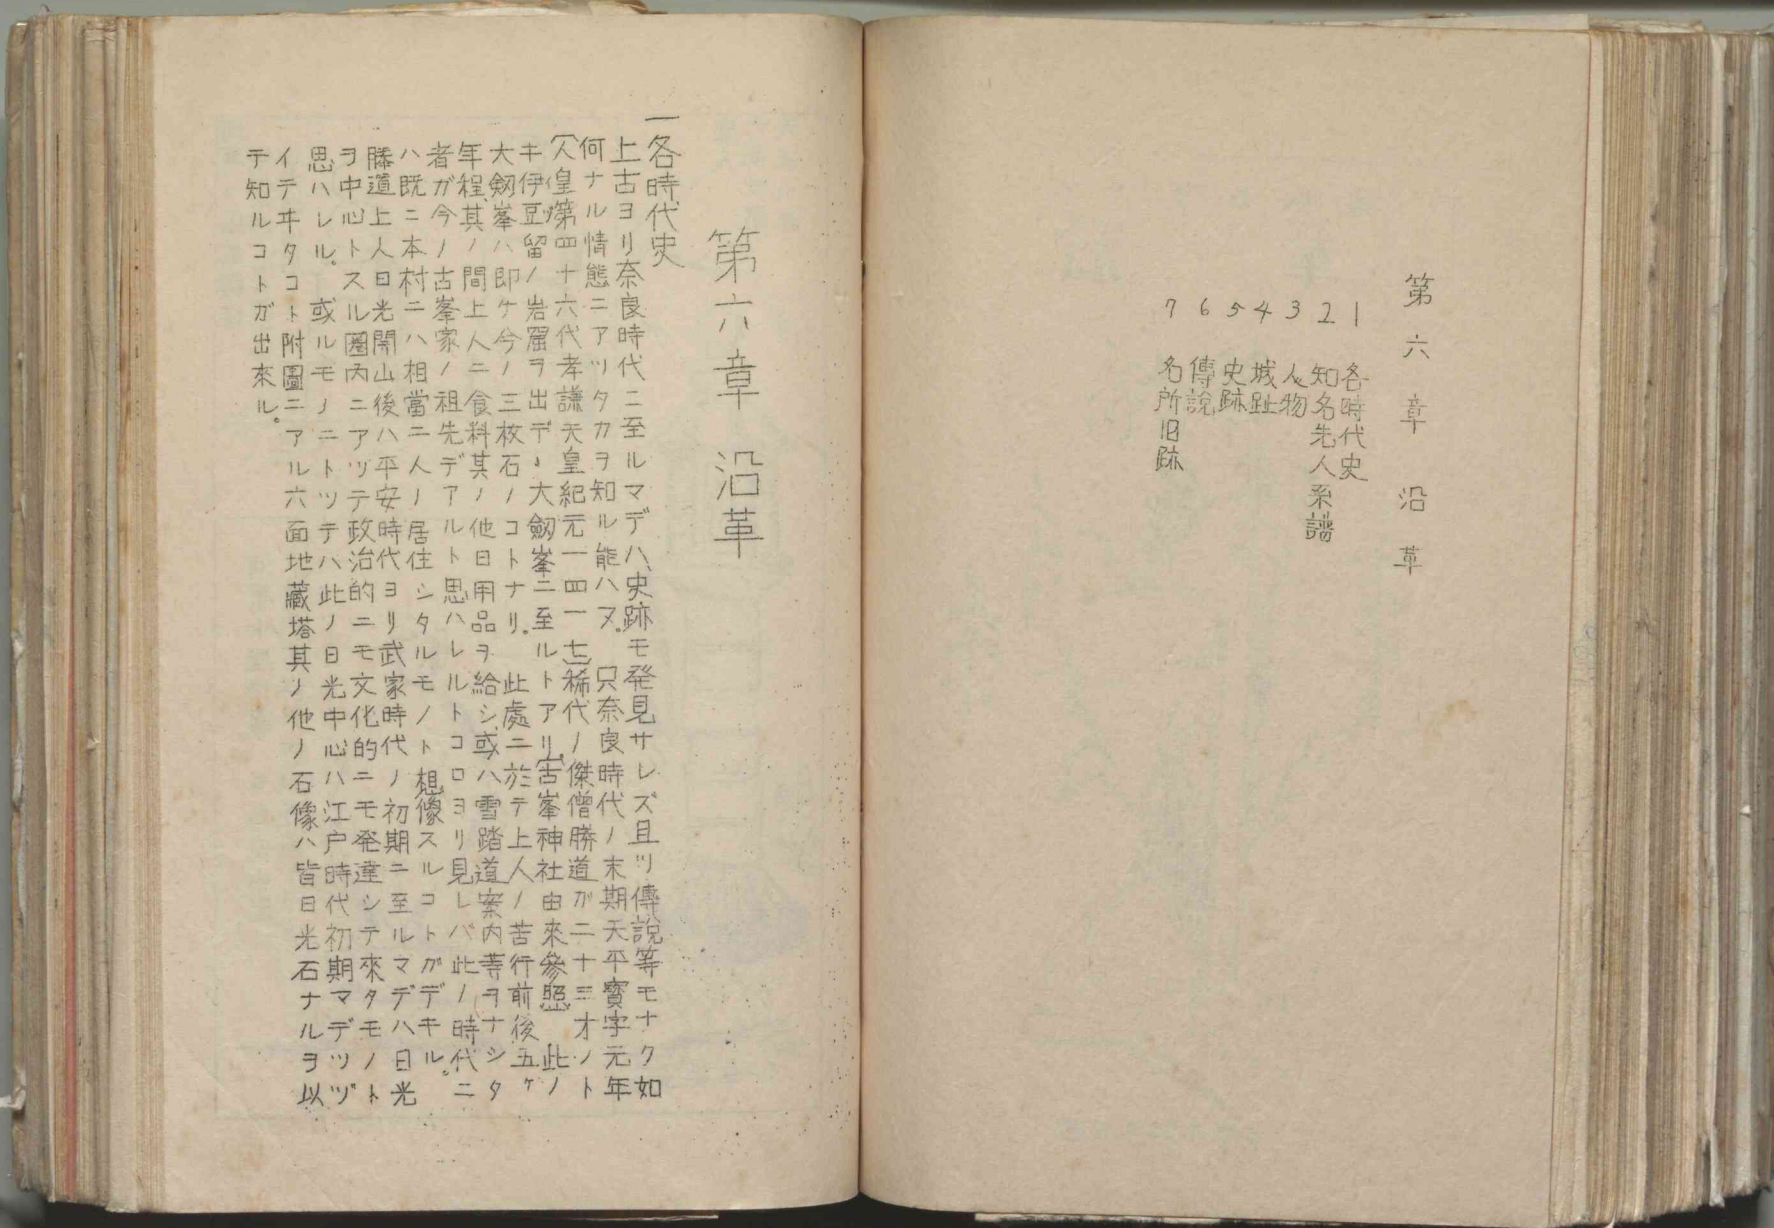 第六章 沿革
1 各時代史
2 知名先人系譜
3 人物
4 城趾
5 史跡
6 傳説
7 名所旧跡
第六章 沿革
一各時代史
上古ヨリ奈良時代ニ至ルマデハ、史跡モ発見サレズ且ツ傳説等モナク如
何ナル情態ニアツタカヲ知ル能ハヌ。只奈良時代ノ末期天平寳字元年
(人皇第四十六代孝謙天皇紀元一四一七)稀代ノ傑僧勝道ガ二十三才ノト
キ伊豆留ノ岩窟ヲ出デ、大劔峯ニ至ルトアリ。(古峯神社由來參照)此ノ
大劔峯ハ即ケ今ノ三枚石ノコトナリ。此處ニ於テ上人ノ苦行前後五ケ
年程、其ノ間上人ニ食料其ノ他日用品ヲ給シ、或ハ雪踏道案内等ヲナシタ
者ガ今ノ古峯家ノ祖先デアルト思ハレルトコロヨリ見レバ此ノ時代ニ
ハ既ニ本村ニハ相當ニ人ノ居住シタルモノト想像スルコトガデキル。
勝道上人日光開山後ハ平安時代ヨリ武家時代ノ初期ニ至ルマデハ日光
ヲ中心トスル圏内ニアツテ政治的ニモ文化的ニモ発達シテ來タモノト
思ハレル。或ルモノニトツテハ此ノ日光中心ハ江戸時代初期マデツヅ
イテヰタコト附圖ニアル六面地藏塔其ノ他ノ石像ハ皆日光石ナルヲ以
テ知ルコトガ出來ル。